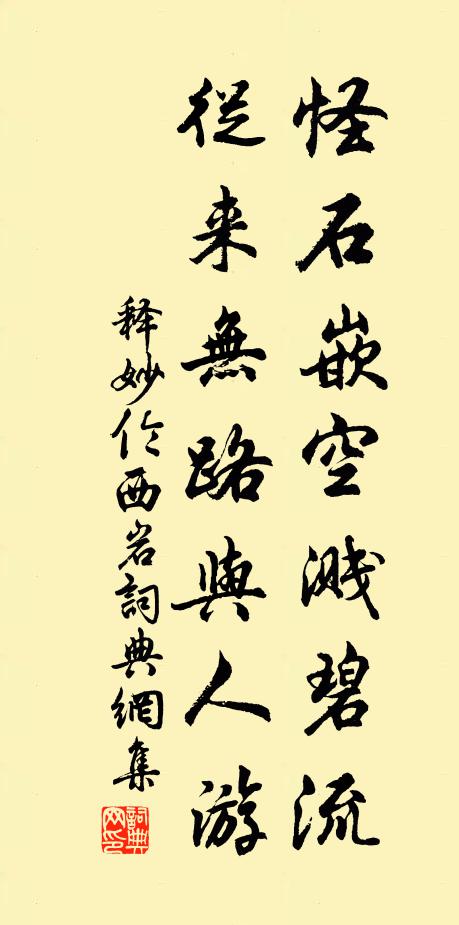 怪石嵌空溅碧流
從来無路與人游
释妙伦西岩詞典網集
詞典網印